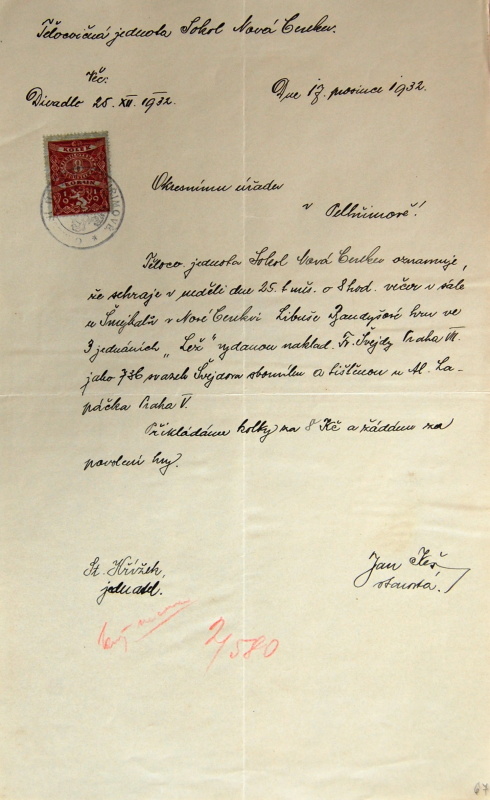 Tělocvičná jednota Sokol Nová Cerekev.
Věc:
Divadlo 25. XII. 1932.
Dne 17. prosince 1932.
KOLEK
Okresnímu úřadu
v Pelhřimově!
Těloc. jednota Sokol Nová Cerekev oznamuje,
že sehraje v neděli dne 25. t. měs. o 8 hod. večer v sále
u Šmejkalů v Nové Cerekvi Libuše Baudyšové hru ve
3 jednáních "Lež" vydanou naklad. Fr. Švejdy Praha VII.
jako 736 svazek Švejdova sborníku a tištěnou u Al. La-
páčka Praha V.
Přikládáme kolky za 8 Kč a žádáme za
povolení hry.
St. Křížek,
jednatel.
Jan
starosta.
2/580
67